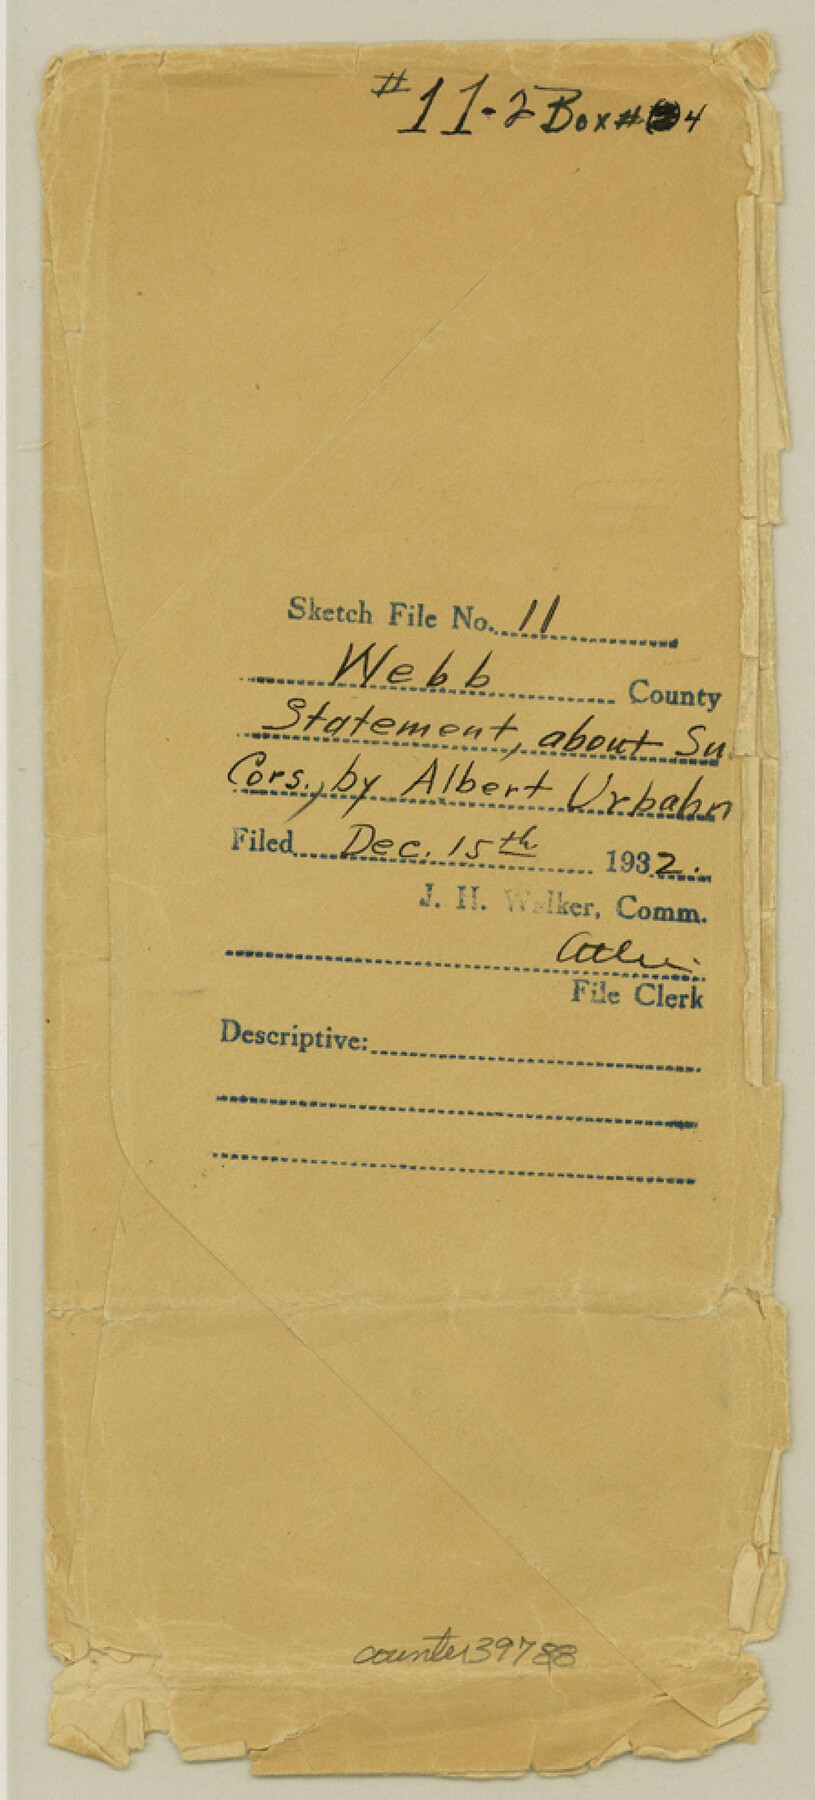 #11-2 Box# 4
Sketch File No. 11
Webb County
Statement, about Su.
Cors., by Albert Urbahn
Filed Dec. 15th 1932.
J. H. Walker, Comm.
File Clerk
Descriptive:
counter 39788